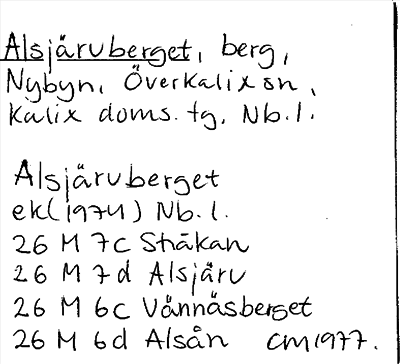 Alsjärvberget, berg,
Nybyn, Överkalix sn,
Kalix doms. tg, Nb. l.
Alsjärvberget
ek (1974) Nb. l.
26 M 7c Stråkan
26 M 7d Alsjärv
26 M 6c Vännäsberget
26 M 6d Alsån CM 1977.